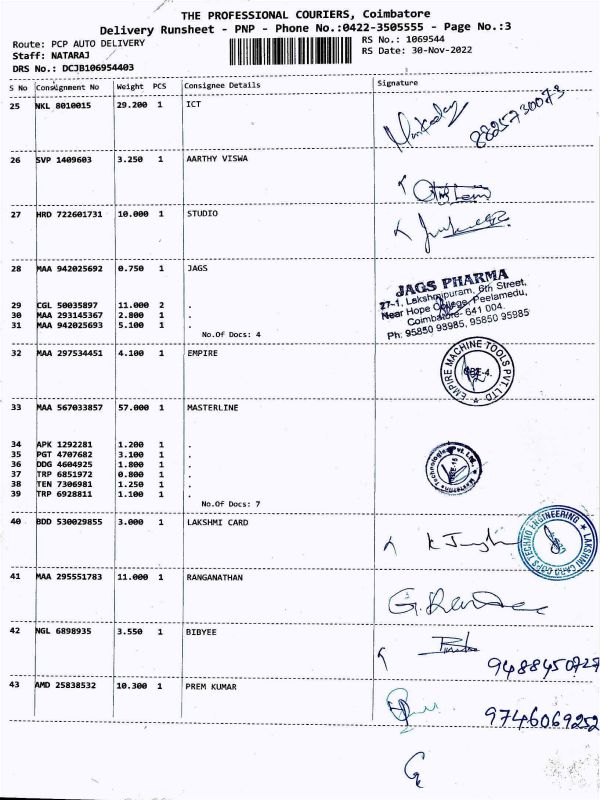 THE PROFESSIONAL COURIERS, Coimbatore
Delivery Runsheet - PNP - Phone No.:0422-3505555 - Page No.:3
Route: PCP AUTO DELIVERY RS No.: 1069544
Staff: NATARAJ RS Date: 30-Nov-2022
DRS No.: DCJB106954403
S No Consignment No Weight PCS Consignee Details Signature
25 NKL 8010015 29.200 1 ICT
8825730073
26 SVP 1409603 3.250 1 AARTHY VISWA
27 HRD 722601731 10.000 1 STUDIO
28 MAA 942025692 0.750 1 JAGS
JAGS PHARMA
27-1, Lakshmipuram, 6th Street,
Near Hope College, Peelamedu,
Coimbatore- 641 004.
Ph: 95850 98985, 95850 95985
29 CGL 50035897 11.000 2 .
30 MAA 293145367 2.800 1 .
31 MAA 942025693 5.100 1 .
No.Of Docs: 4
32 MAA 297534451 4.100 1 EMPIRE
EMPIRE MACHINE TOOLS PVT. LTD
CBE-4.
33 MAA 567033857 57.000 1 MASTERLINE
34 APK 1292281 1.200 1 .
35 PGT 4707682 3.100 1 .
36 DDG 4604925 1.800 1 .
37 TRP 6851972 0.800 1 .
38 TEN 7306981 1.250 1 .
39 TRP 6928811 1.100 1 .
No.Of Docs: 7
40 BDD 530029855 3.000 1 LAKSHMI CARD
41 MAA 295551783 11.000 1 RANGANATHAN
42 NGL 6898935 3.550 1 BIBYEE
43 AMD 25838532 10.300 1 PREM KUMAR
9746069252